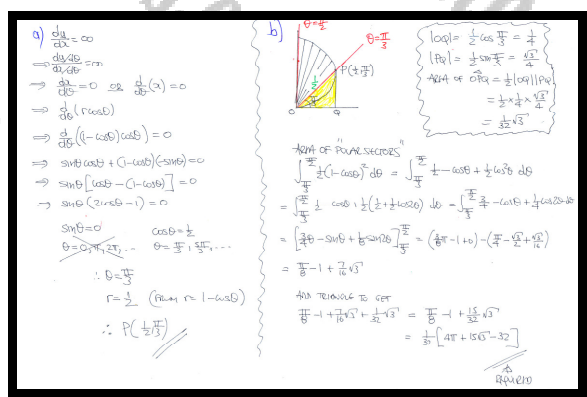 a) dy/dx = ∞
⇒ dy/dθ / dx/dθ = ∞
⇒ dx/dθ = 0 OR d/dθ(x) = 0
⇒ d/dθ(rcosθ)
⇒ d/dθ((1-cosθ)cosθ) = 0
⇒ sinθcosθ + (1-cosθ)(-sinθ) = 0
⇒ sinθ[cosθ - (1-cosθ)] = 0
⇒ sinθ(2cosθ - 1) = 0
sinθ = 0 cosθ = 1/2
θ = 0, π, 2π, ... θ = π/3, 5π/3, ...
∴ θ = π/3
r = 1/2 (FROM r = 1-cosθ)
∴ P(1/2, π/3)
b)
θ = π/2
θ = π/3
P(1/2, π/3)
1/2
π/3
O
Q
|OQ| = 1/2 cos π/3 = 1/4
|PQ| = 1/2 sin π/3 = √3/4
AREA OF OPQ = 1/2|OQ||PQ|
= 1/2 × 1/4 × √3/4
= 1/32 √3
AREA OF "POLAR SECTORS"
∫_{π/3}^{π/2} 1/2(1-cosθ)² dθ = ∫_{π/3}^{π/2} 1/2 - cosθ + 1/2cos²θ dθ
= ∫_{π/3}^{π/2} 1/2 - cosθ + 1/2(1/2 + 1/2cos2θ) dθ = ∫_{π/3}^{π/2} 3/4 - cosθ + 1/4cos2θ dθ
= [3/4θ - sinθ + 1/8sin2θ]_{π/3}^{π/2} = (3/8π - 1 + 0) - (π/4 - √3/2 + √3/16)
= π/8 - 1 + 7/16√3
ADD TRIANGLE TO GET
π/8 - 1 + 7/16√3 + 1/32√3 = π/8 - 1 + 15/32√3
= 1/32[4π + 15√3 - 32]
REQUIRED